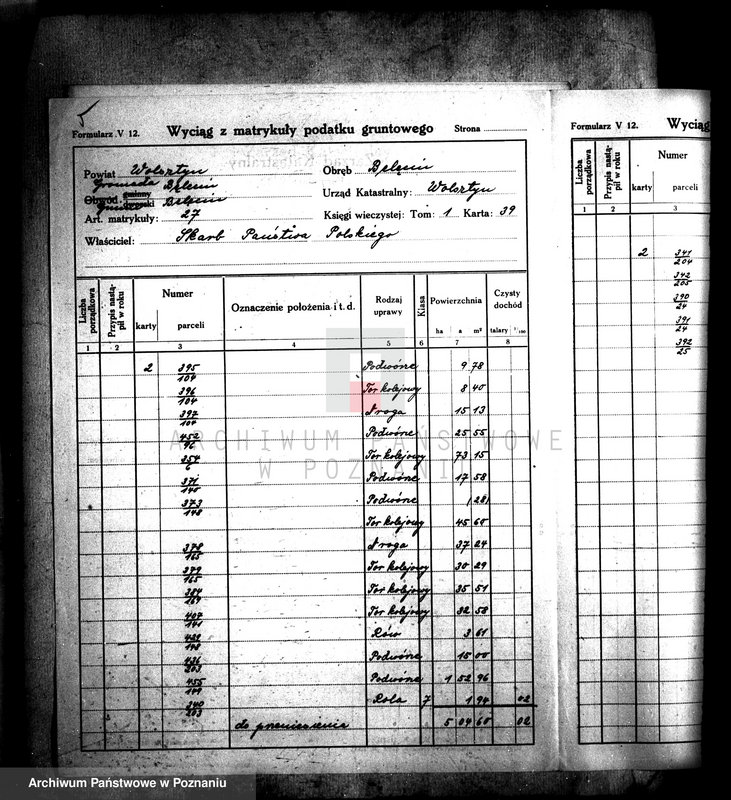 Formularz V 12. Wyciąg z matrykuły podatku gruntowego Strona
Powiat Wolsztyn Obręb Bełęcin
Gromada Bełęcin
Obwód gminny Bełęcin Urząd Katastralny: Wolsztyn
Art. matrykuły: 27 Księgi wieczystej: Tom: 1 Karta: 39
Właściciel: Skarb Państwa Polskiego
Liczba porządkowa Przypis nastąpił w roku Numer karty parceli Oznaczenie położenia i t. d. Rodzaj uprawy Klasa Powierzchnia ha a m² Czysty dochód talary 1/100
1 2 3 4 5 6 7 8
2 395/104 Podwórze 9 78
396/104 Tor kolejowy 8 40
397/104 Droga 15 13
452/96 Podwórze 25 55
354/6 Tor kolejowy 73 15
371/140 Podwórze 17 58
373/148 Podwórze 1 28
Tor kolejowy 45 60
378/165 Droga 37 24
379/165 Tor kolejowy 30 29
384/ Tor kolejowy 35 51
407/141 Tor kolejowy 32 58
422/148 Rów 3 61
436/203 Podwórze 15 00
455/149 Podwórze 1 52 96
340/203 Rola 7 1 94 02
do przeniesienia 5 04 60 02
Formularz V 12. Wyciąg
Liczba porządkowa Przypis nastąpił w roku Numer karty parceli
1 2 3
2 341/204
342/205
390/24
391/24
392/25
ARCHIWUM PAŃSTWOWE
W POZNANIU
Archiwum Państwowe w Poznaniu